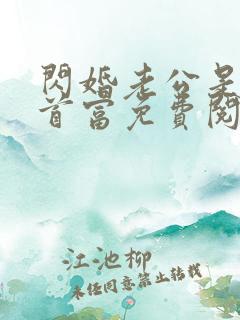 閃婚老公是
首富免費閱
江池柳
未经同意禁止转载